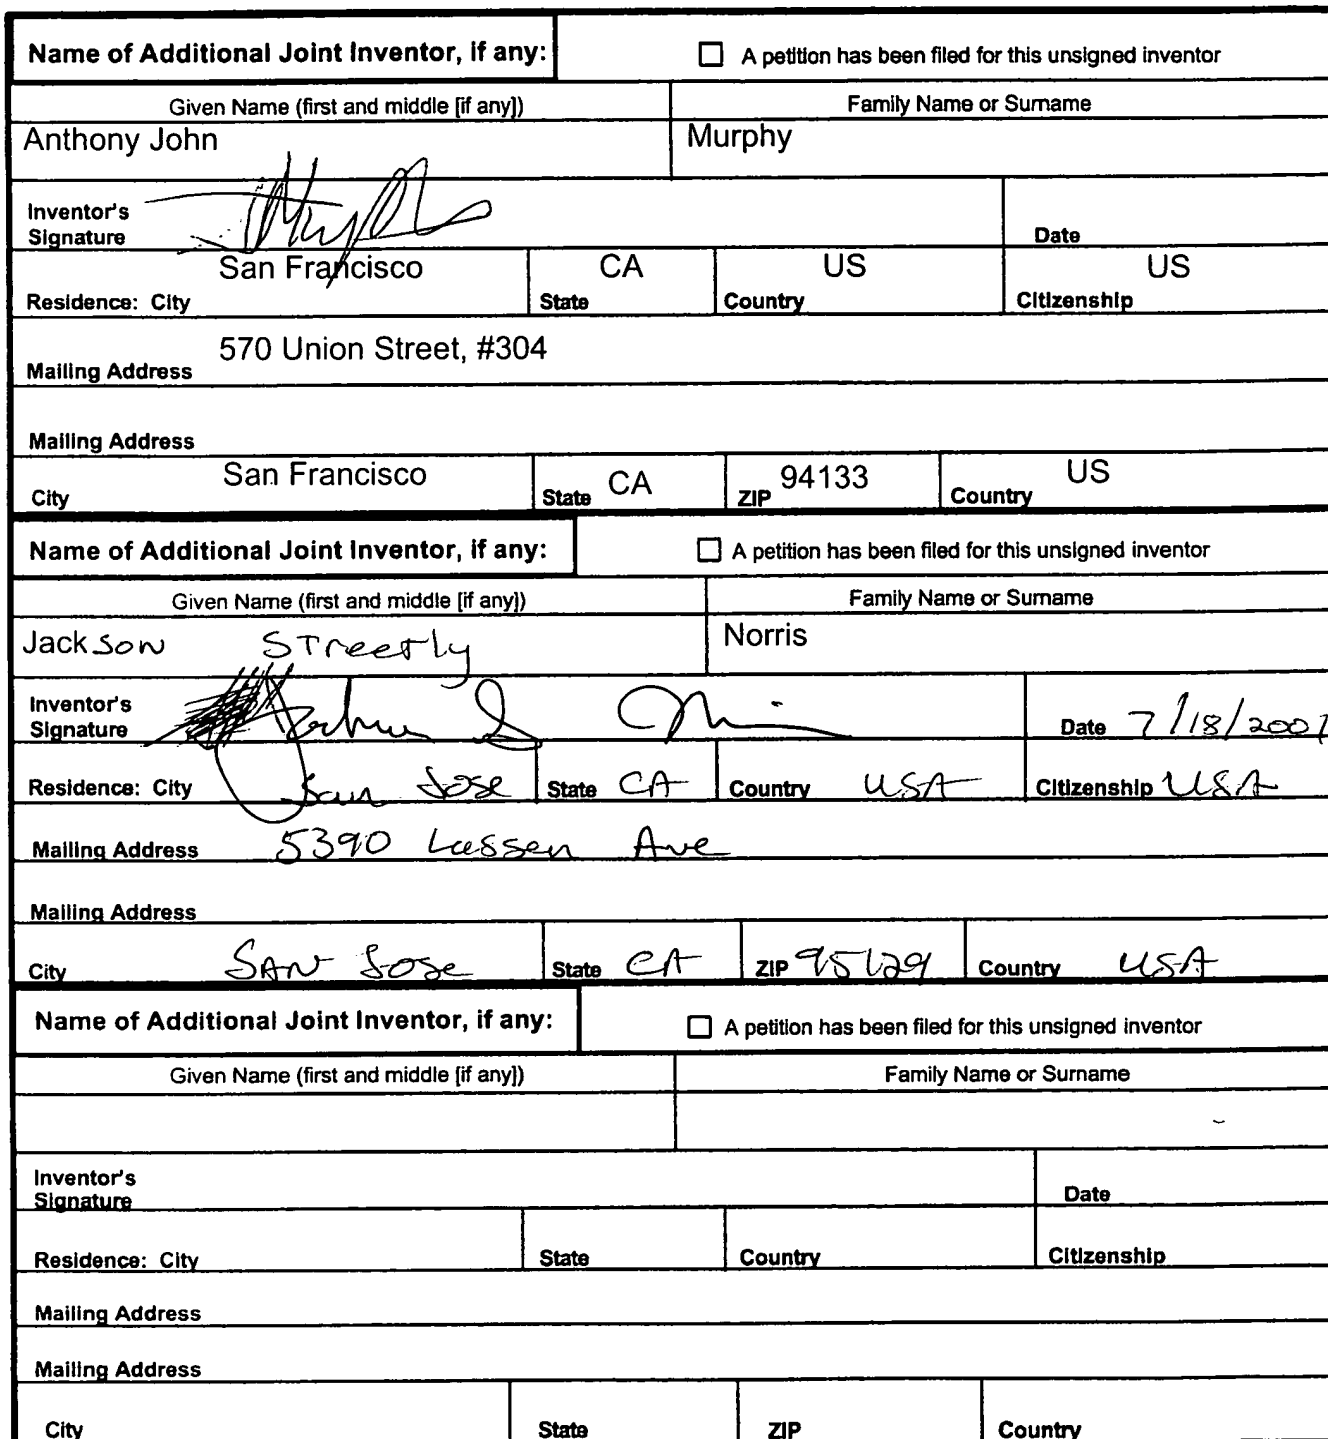 Name of Additional Joint Inventor, if any: A petition has been filed for this unsigned inventor
Given Name (first and middle [if any]) Family Name or Surname
Anthony John Murphy
Inventor's
Signature Date
San Francisco CA US US
Residence: City State Country Citizenship
570 Union Street, #304
Mailing Address
Mailing Address
San Francisco CA 94133 US
City State ZIP Country
Name of Additional Joint Inventor, if any: A petition has been filed for this unsigned inventor
Given Name (first and middle [if any]) Family Name or Surname
Jackson Streetly Norris
Inventor's
Signature Date 7/18/2007
Residence: City San Jose State CA Country USA Citizenship USA
Mailing Address 5390 Lassen Ave
Mailing Address
City SAN Jose State CA ZIP 95129 Country USA
Name of Additional Joint Inventor, if any: A petition has been filed for this unsigned inventor
Given Name (first and middle [if any]) Family Name or Surname
Inventor's
Signature Date
Residence: City State Country Citizenship
Mailing Address
Mailing Address
City State ZIP Country